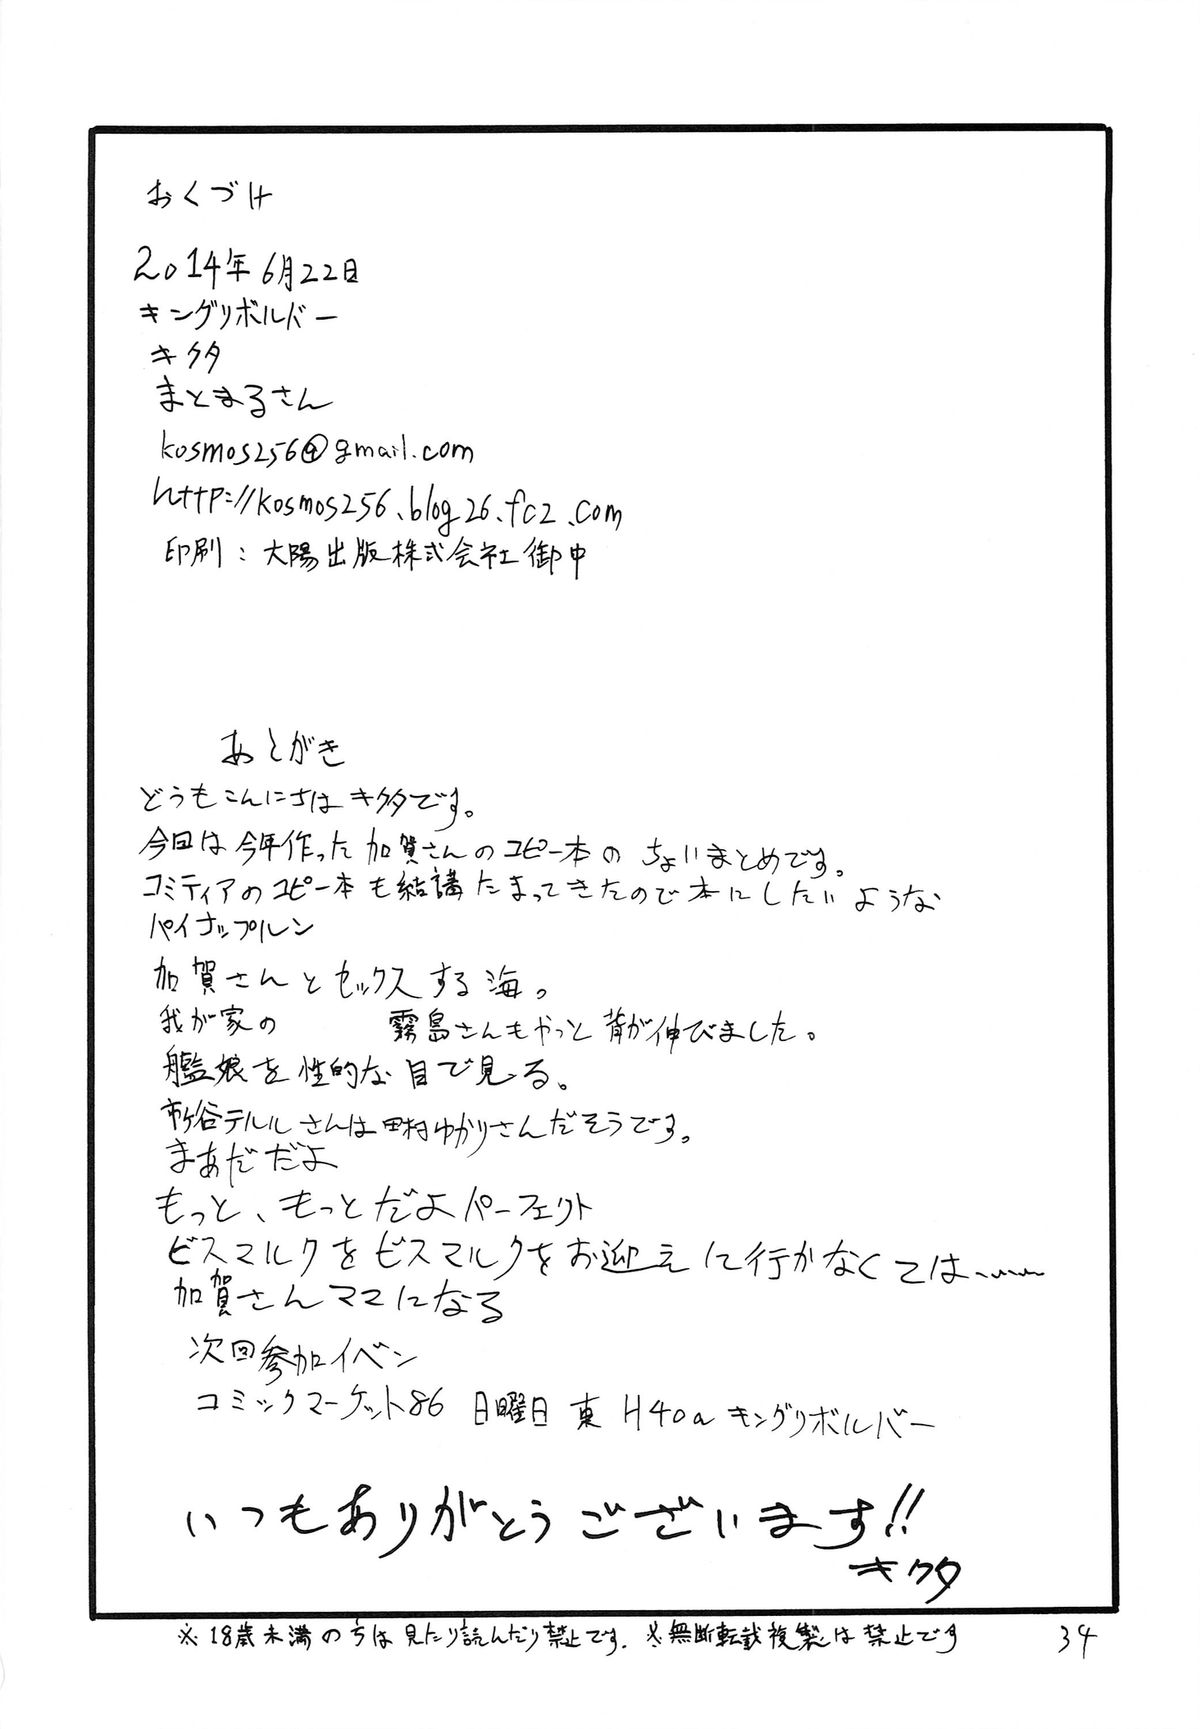 おくづけ
2014年6月22日
キングリボルバー
キクタ
まとまるさん
kosmos256@gmail.com
http://kosmos256.blog26.fc2.com
印刷：大陽出版株式会社御中
あとがき
どうもこんにちはキクタです。
今回は今年作った加賀さんのコピー本のちょいまとめです。
コミティアのコピー本も結構たまってきたので本にしたいような
パイナップルン
加賀さんとセックスする海。
我が家の 霧島さんもやっと背が伸びました。
艦娘を性的な目で見る。
市ヶ谷テルルさんは田村ゆかりさんだそうです。
まあだだよ
もっと、もっとだよパーフェクト
ビスマルクをビスマルクをお迎えに行かなくては……
加賀さんママになる
次回参加イベン
コミックマーケット86 日曜日 東 H40a キングリボルバー
いつもありがとうございます!!
キクタ
※18歳未満の方は見たり読んだり禁止です. ※無断転載複製は禁止です
34